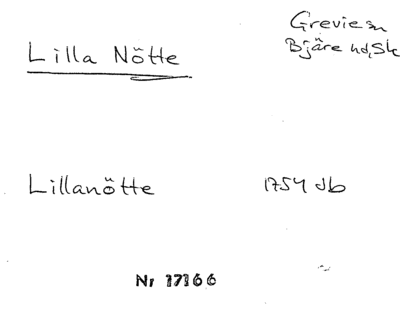 Grevie sn
Bjäre hd, Sk
Lilla Nötte
Lillanötte 1754 db
Nr 17166